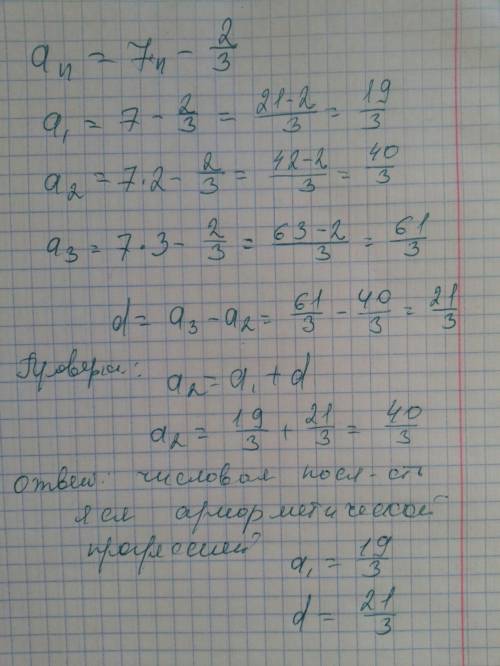 aₙ = 7·n − 2/3
a₁ = 7 − 2/3 = (21−2)/3 = 19/3
a₂ = 7·2 − 2/3 = (42−2)/3 = 40/3
a₃ = 7·3 − 2/3 = (63−2)/3 = 61/3
d = a₃ − a₂ = 61/3 − 40/3 = 21/3
a₂ = a₁ + d
a₂ = 19/3 + 21/3 = 40/3
ответ: числовая посл-сть
явл арифметической
прогрессией
a₁ = 19/3
d = 21/3